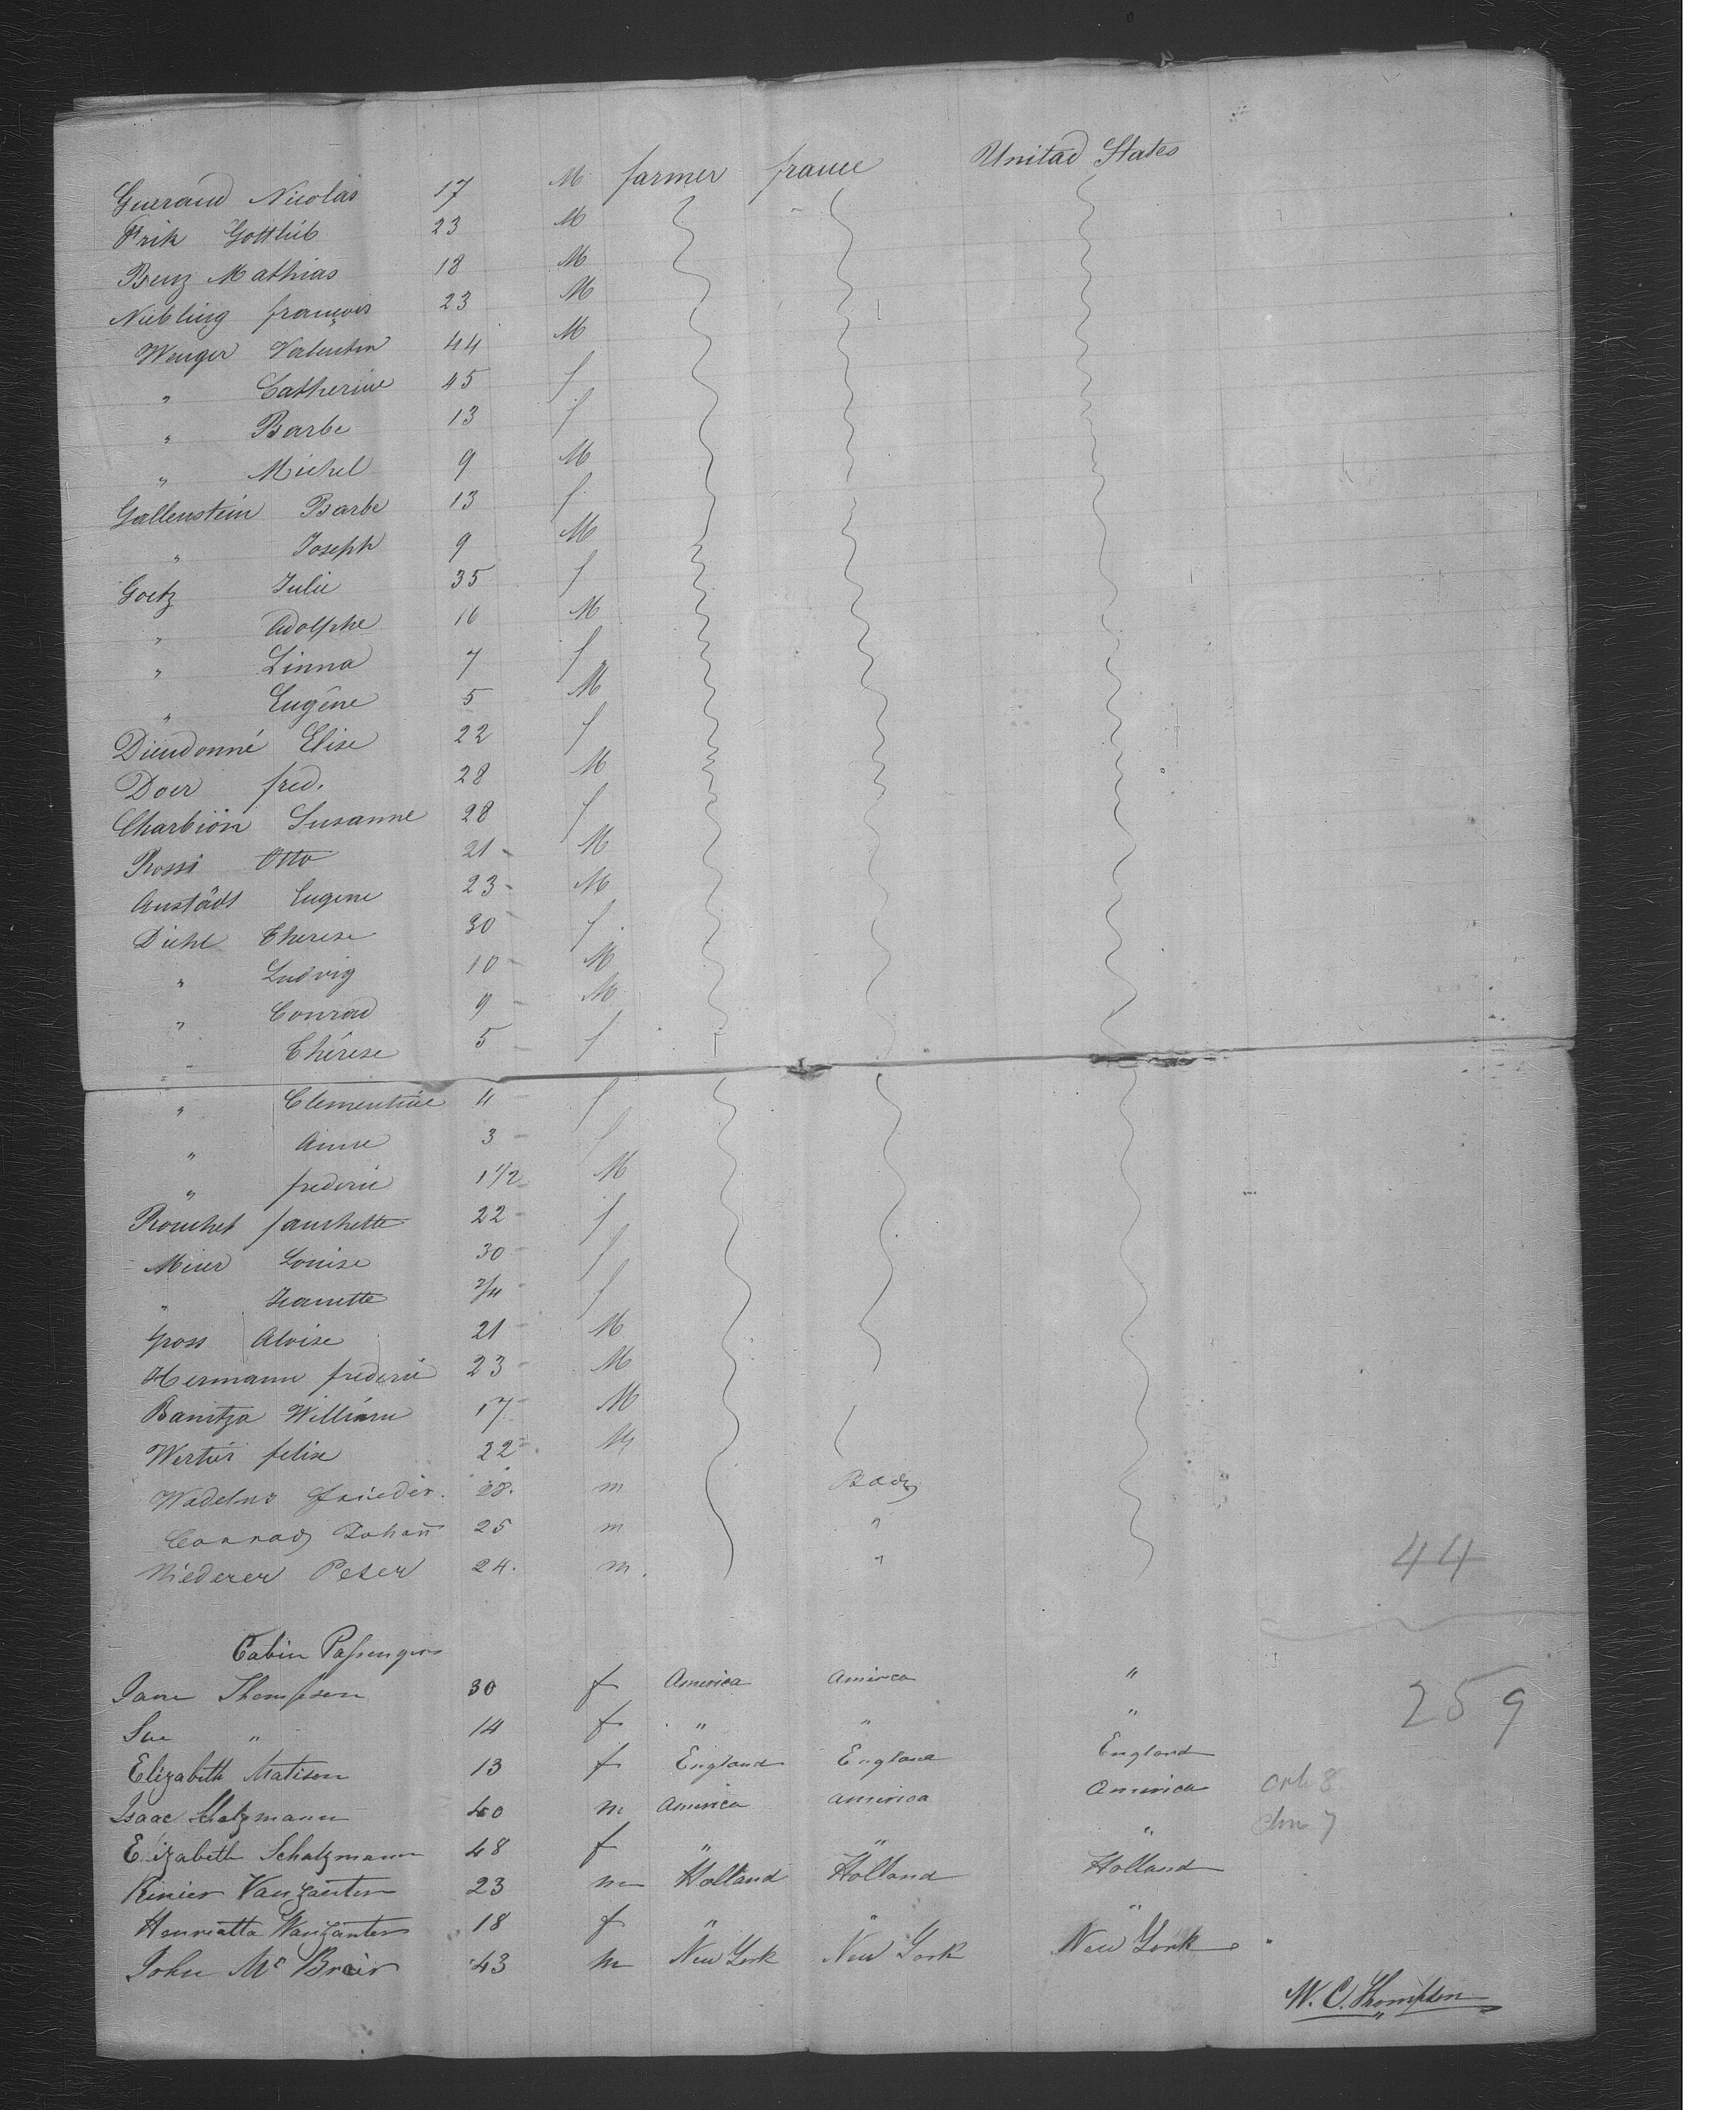 Gueraud Nicolas 17 M farmer france Unitad States
Frik Gottlieb 23 M
Benz Mathias 18 M
Nübling françois 23 M
Wenger Valentin 44 M
" Catherine 45 f
" Barbe 13 f
" Michel 9 M
Gallenstein Barbe 13 f
" Joseph 9 M
Goetz Julie 35 f
" Adolphe 16 M
" Linna 7 f
" Eugêne 5 M
Dieudonné Elise 22 f
Doer fred. 28 M
Charbion Susanne 28 f
Rossi Otto 21 - M
Anstädt Eugene 23 - M
Diehl Therese 30 - f.
" Ludvig 10 - M
" Conrad 9 - M
" Thérese 5 - f
" Clementine 4 - f
" Anne 3 - f
" frederic 1 1/2 M
Rouchet fanchette 22 - f
Meier Louise 30 - f
" Jeanette 3/4 - f
Gross Aloise 21 - M
Hermann frederic 23 - M
Banitza William 17 - M
Wertier felix 22 - M
Frieder. 28. m Baden
Conrad Johañ 25 m "
Niederer Peter 24. m. "
44
Cabin Passengers
Jane Thompson 30 f America America "
Sue " 14 f " " "
259
Elizabeth Matison 13 f England England England
Isaac Schatzmann 40 m America America America
Elizabeth Schatzmann 48 f " " "
Rinier Vanzanten 23 m Holland Holland Holland
Henrietta Vanzanten 18 f " " "
John Mc Brair 43 m New York New York New York
W. C. Thompson